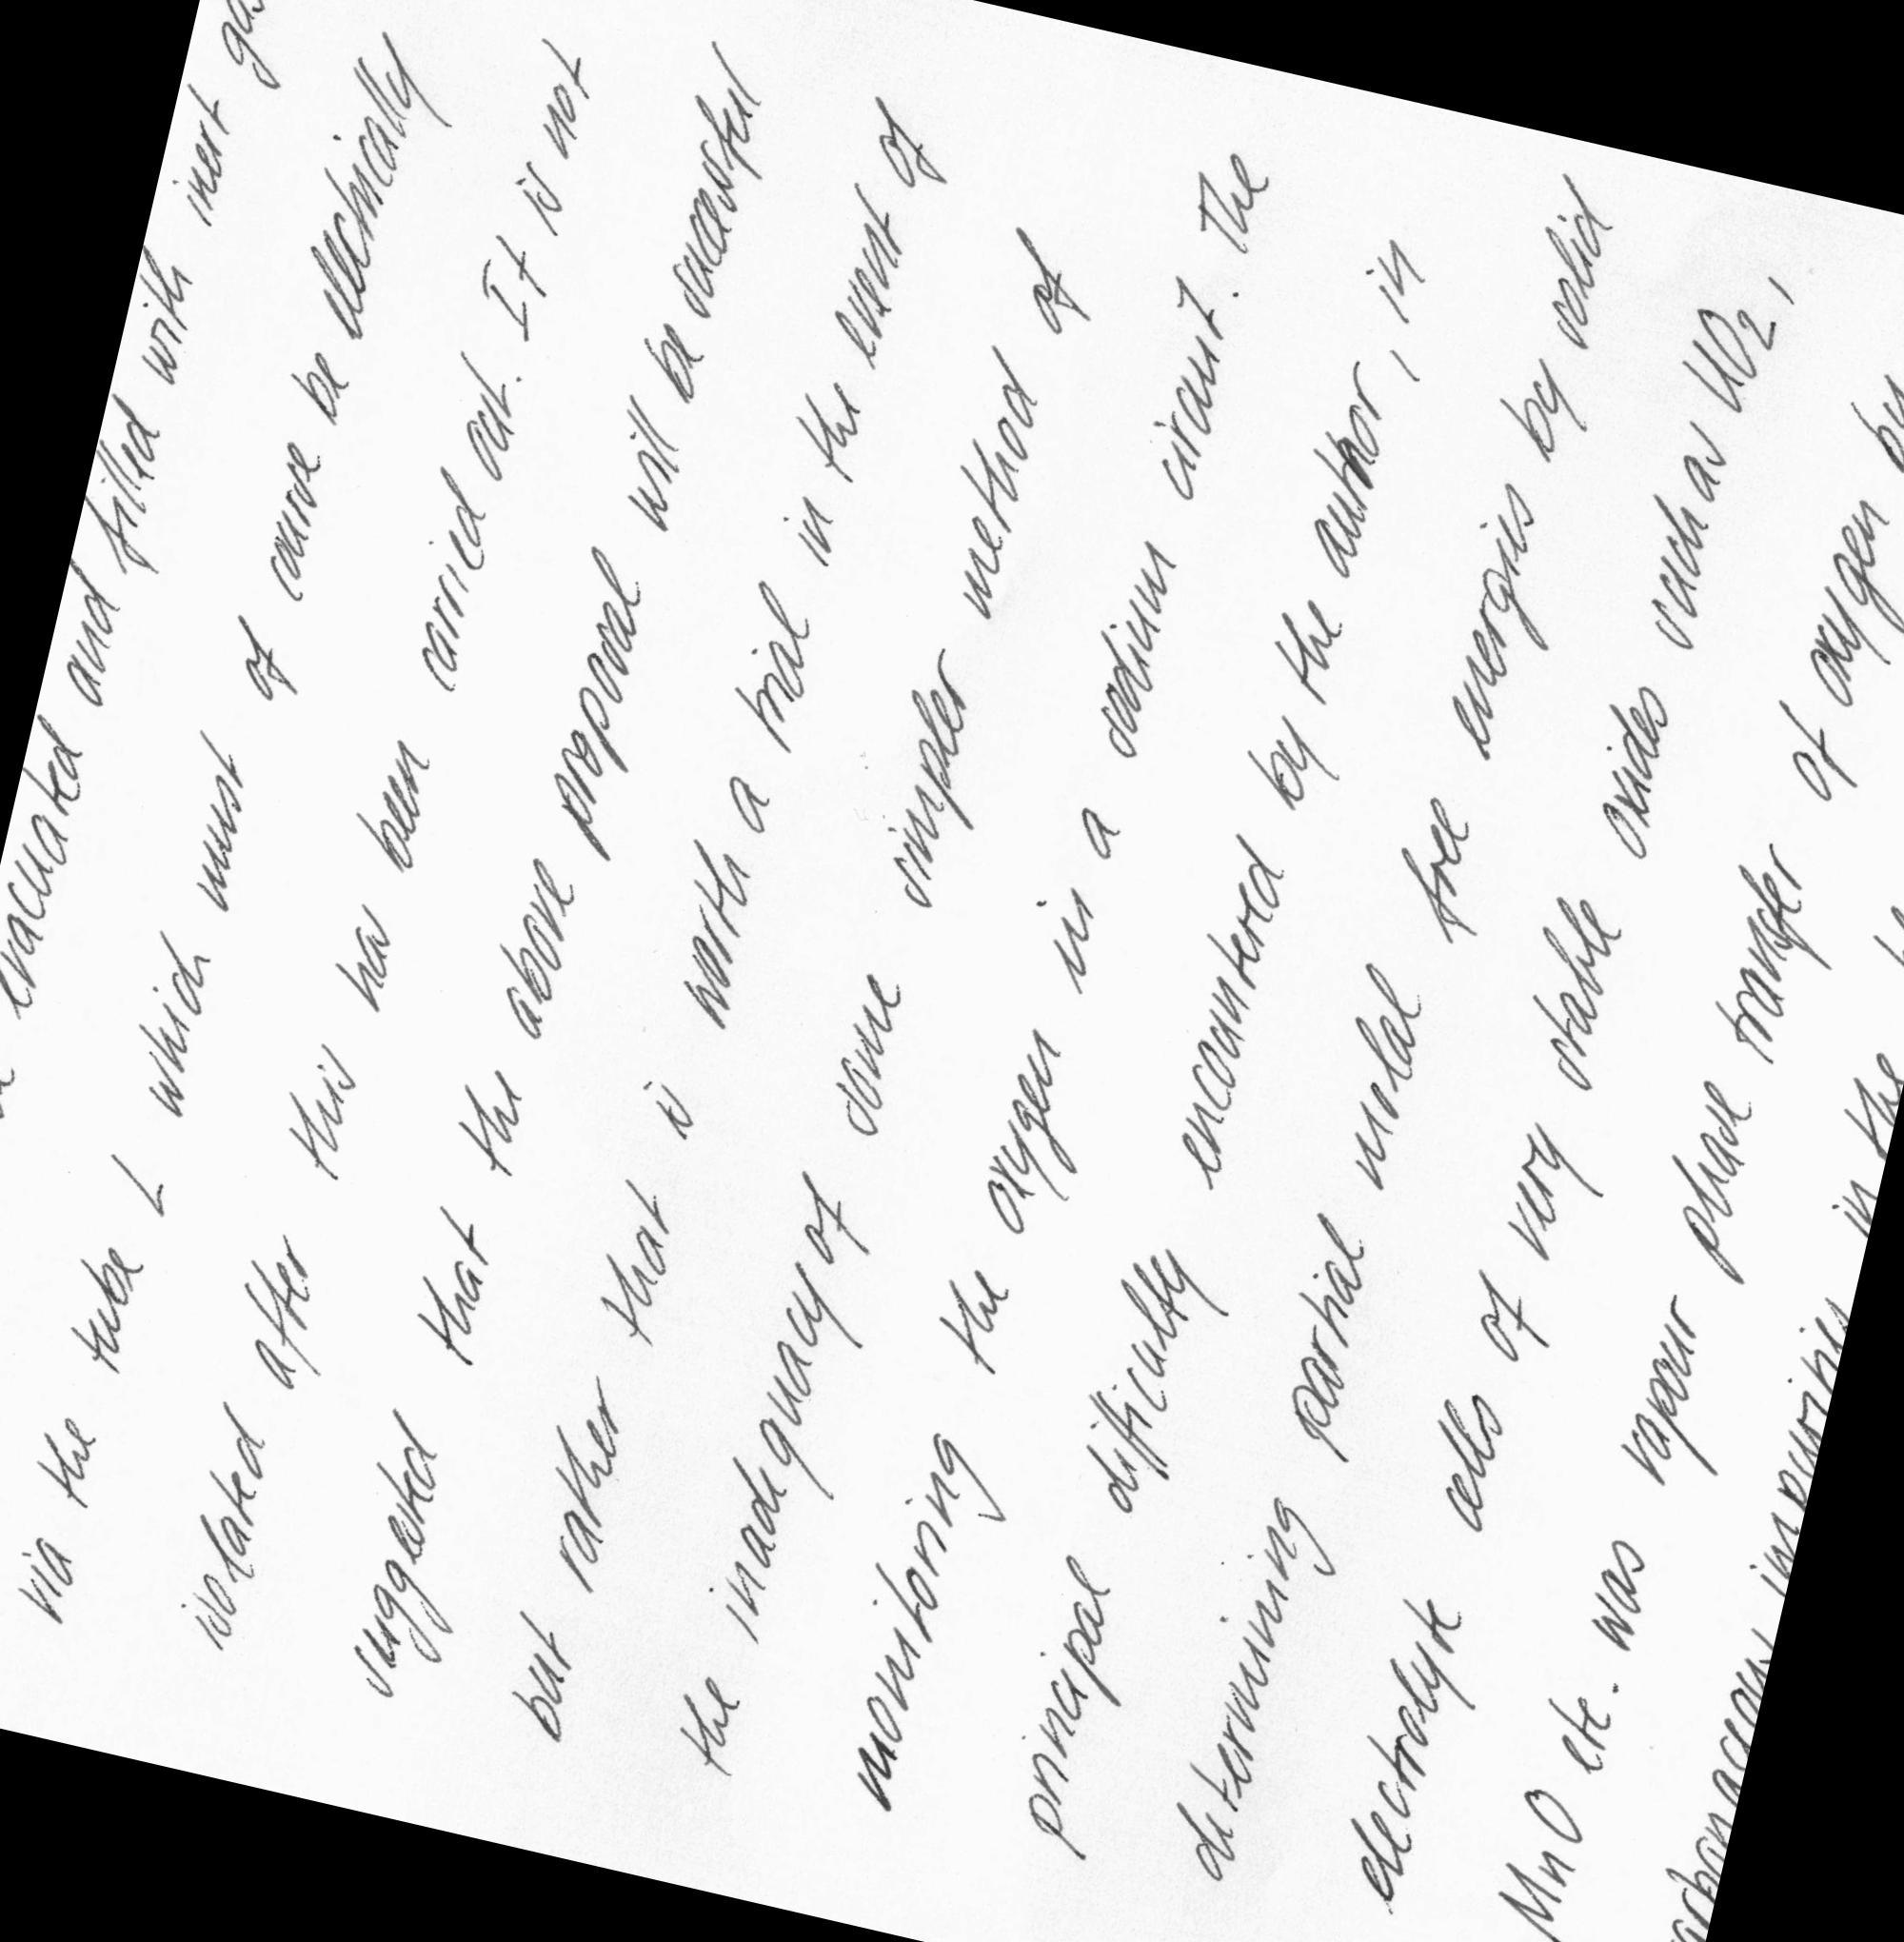 evacuated and filled with inert
via the tube L which must of course be electrically
isolated after this has been carried out. It is not
suggested that the above proposal will be successful
but rather that is worth a trial in the event of
the inadequacy of some simpler method of
monitoring the oxygen in a sodium circuit. The
principal difficulty encountered by the author, in
determining partial molal free energies by solid
electrolyte cells of very stable oxides such as UO2,
MnO etc. was vapour phase transfer of oxygen by
in the